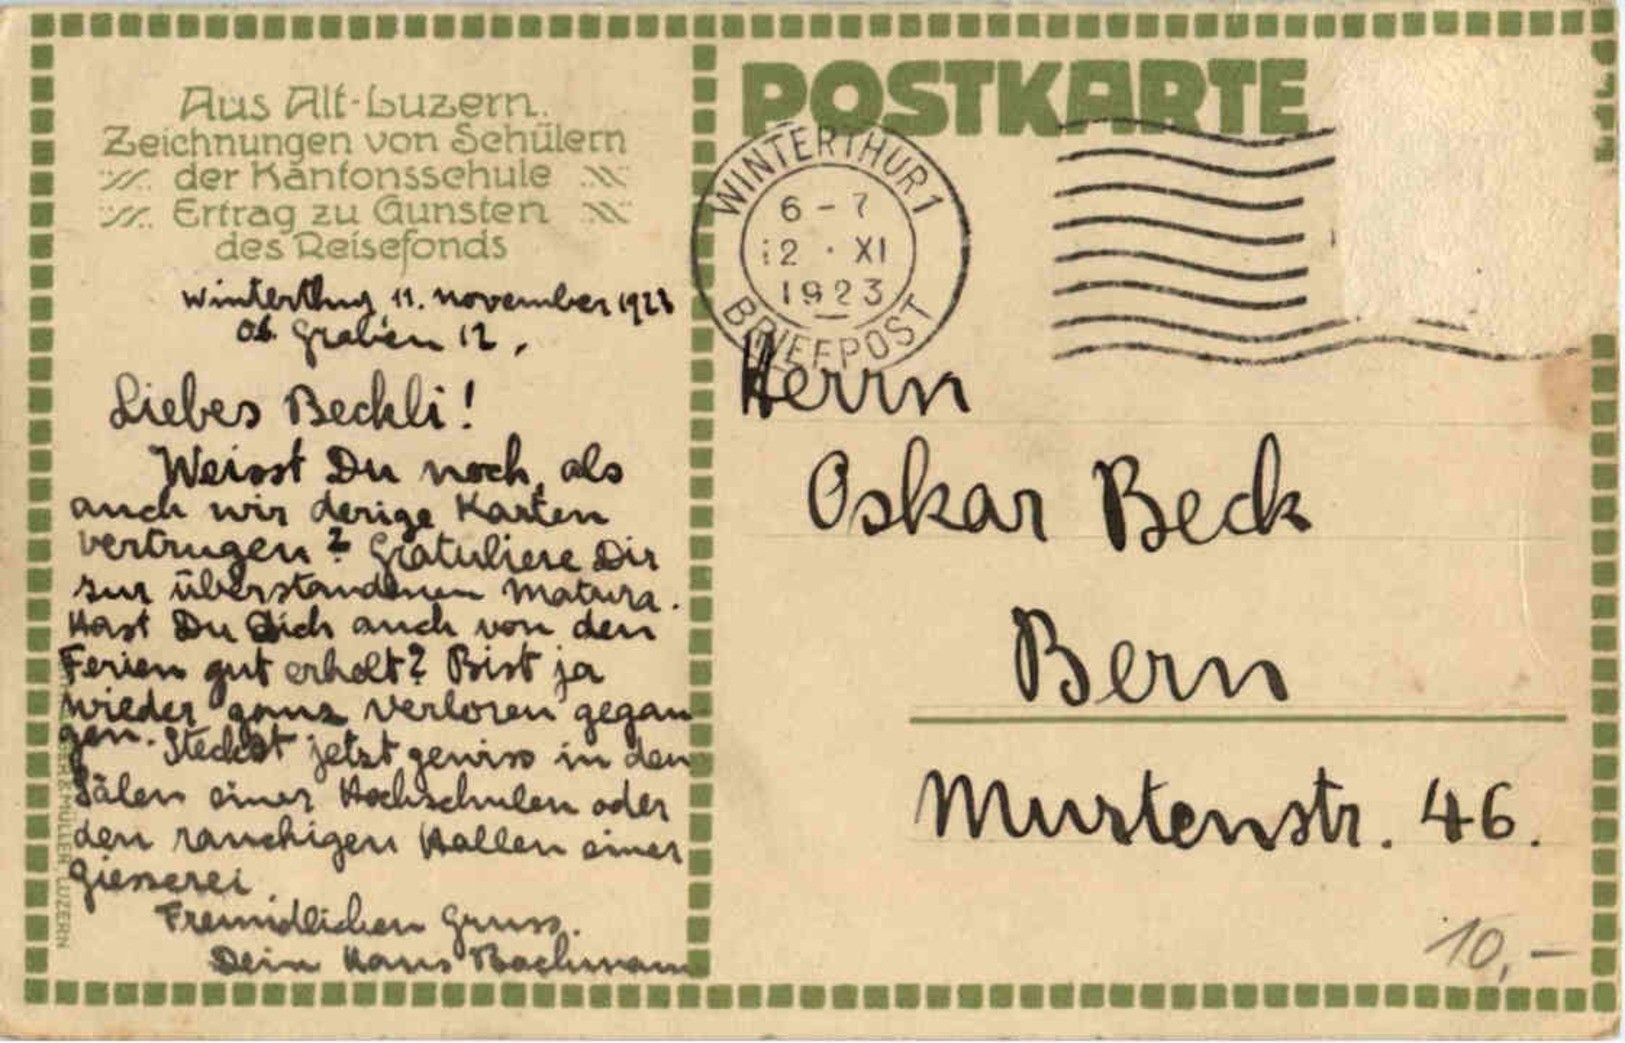 Aus Alt-Luzern.
Zeichnungen von Schülern
der Kantonsschule
Ertrag zu Gunsten
des Reisefonds
Winterthur, 11. November 1923
Ob. Graben 12.
Liebes Beckli!
Weisst Du noch, als
auch wir derige Karten
vertrugen? Gratuliere Dir
zur überstandenen Matura.
Hast Du Dich auch von den
Ferien gut erholt? Bist ja
wieder ganz verloren gegan
gen. Steckst jetzt gewiss in den
Sälen einer Hochschulen oder
den rauchigen Hallen einer
Giesserei.
Freundlichen Gruss.
Dein Hans Bachmann
MÜLLER, LUZERN
POSTKARTE
WINTERTHUR 1
6-7
12 · XI
1923
BRIEFPOST
Herrn
Oskar Beck
Bern
Murtenstr. 46.
10,-